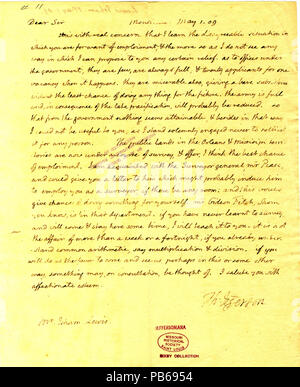 Dear Sir Monticello May 1. 09
It is with real concern that I learn the disagreeable situation in
which you are for want of employment, & the more so as I do not see any
way in which I can propose to you any certain relief. as to offices under
the government, they are few, are always full, & twenty applicants for one
vacancy when it happens. they are miserable also, giving a bare subsistence
without the least chance of doing any thing for the future. the army is full
and, in consequence of the late pacification, will probably be reduced. so
that from the government nothing seems attainable & besides in that way
I could not be useful to you, as I stand solemnly engaged never to sollicit
it for any person. The public lands in the Orleans & Missisipi terri-
tories are now under a course of survey, & offer, I think, the best chance
of employment. I am acquainted with the Surveyor general mr
and could give you a letter to him which might probably induce him
to employ you as a surveyor if there be any room; and this would
give chances of doing something for yourself. mr Gideon Fitch, whom
you know, is in that department. if you have never learnt to survey,
and will come & stay here some time, I will teach it to you. it is not
the affair of more than a week or a fortnight, if you already under-
stand common arithmetic, say multiplication & division. if you
will do us the favor to come and see us, perhaps in this or some other
way something may, on consultation, be thought of. I salute you with
affectionate esteem.
Th: Jefferson
mr Isham Lewis
JEFFERSONIANA
MISSOURI
HISTORICAL
SOCIETY
SAINT LOUIS
BIXBY COLLECTION
alamy
Image ID: PB6954
www.alamy.com